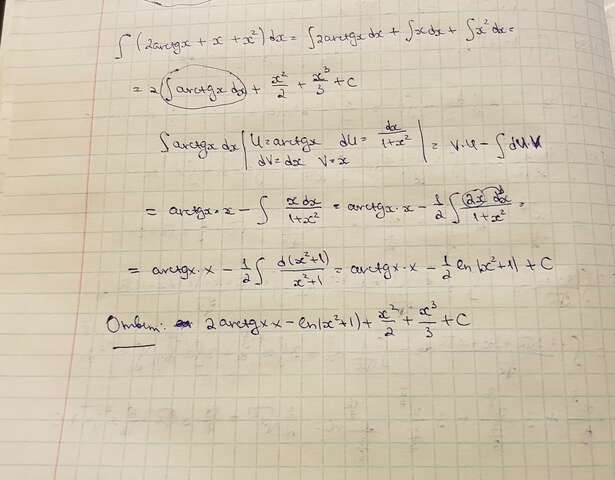 ∫(2arctgx + x + x²)dx = ∫2arctgx dx + ∫xdx + ∫x²dx =
= 2(∫arctgx dx) + x²/2 + x³/3 + C
∫arctgx dx | U=arctgx dU= dx/1+x² dV=dx V=x | = V·U − ∫dU·V
= arctgx·x − ∫ xdx/1+x² = arctgx·x − 1/2 ∫ 2x dx/1+x² =
= arctgx·x − 1/2 ∫ d(x²+1)/x²+1 = arctgx·x − 1/2 ln|x²+1| + C
Ответ: 2arctgx x − ln|x²+1| + x²/2 + x³/3 + C